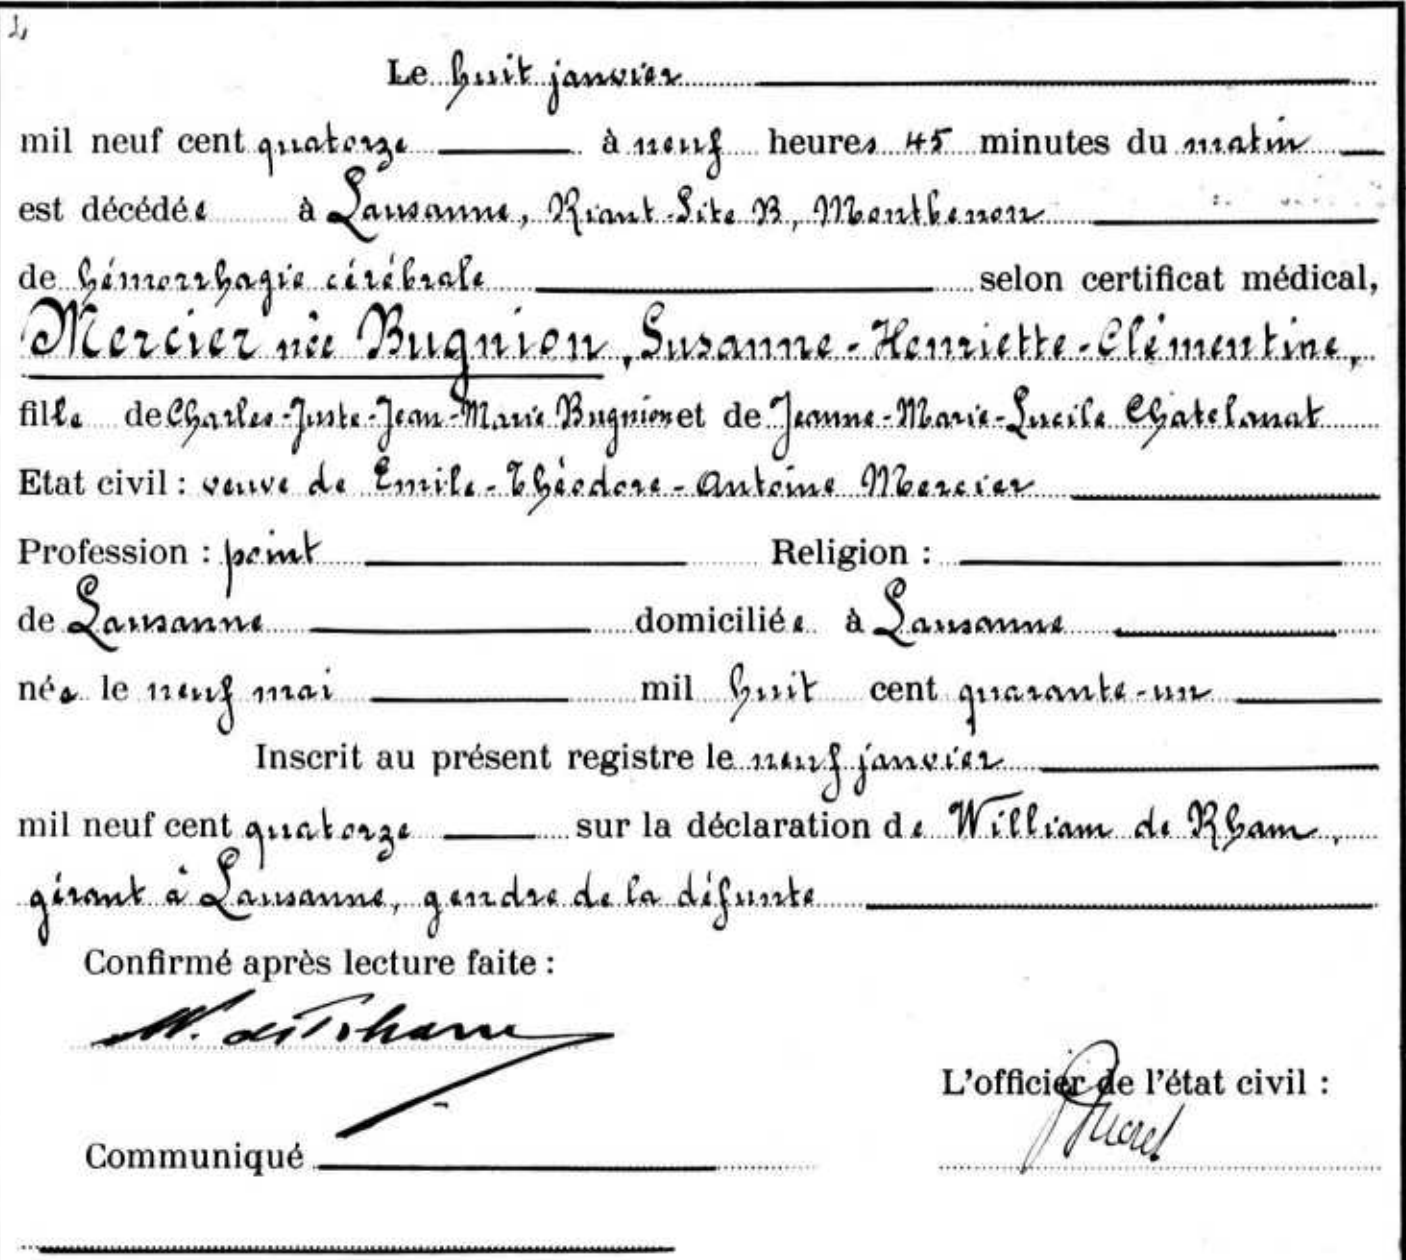 Le huit janvier
mil neuf cent quatorze à neuf heures 45 minutes du matin
est décédée à Lausanne, Riant-Site B, Montbenon
de hémorrhagie cérébrale selon certificat médical,
Mercier née Bugnion, Susanne-Henriette-Clémentine,
fille de Charles-Juste-Jean-Marie Bugnion et de Jeanne-Marie-Lucile Chatelanat
Etat civil : veuve de Emile-Théodore-Antoine Mercier
Profession : point Religion :
de Lausanne domiciliée à Lausanne
née le neuf mai mil huit cent quarante-un
Inscrit au présent registre le neuf janvier
mil neuf cent quatorze sur la déclaration de William de Rham,
gérant à Lausanne, gendre de la défunte
Confirmé après lecture faite :
W. de Rham
L'officier de l'état civil :
Communiqué